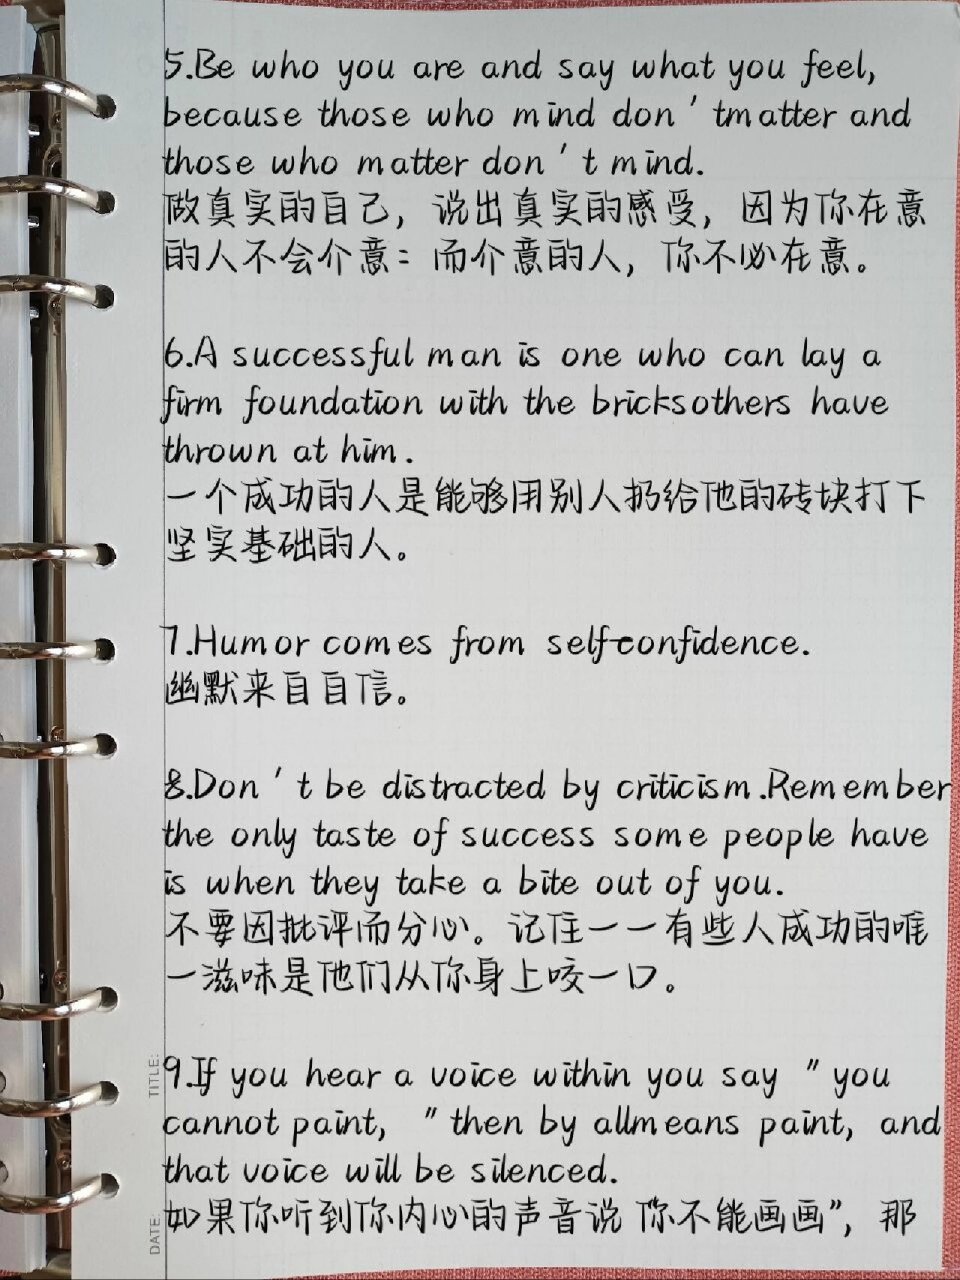 5.Be who you are and say what you feel,
because those who mind don't matter and
those who matter don't mind.
做真实的自己，说出真实的感受，因为你在意
的人不会介意：而介意的人，你不必在意。
6.A successful man is one who can lay a
firm foundation with the bricksothers have
thrown at him.
一个成功的人是能够用别人扔给他的砖块打下
坚实基础的人。
7.Humor comes from self-confidence.
幽默来自自信。
8.Don't be distracted by criticism.Remember
the only taste of success some people have
is when they take a bite out of you.
不要因批评而分心。记住一一有些人成功的唯
一滋味是他们从你身上咬一口。
TITLE:
9.If you hear a voice within you say "you
cannot paint, "then by allmeans paint, and
that voice will be silenced.
DATE:
如果你听到你内心的声音说“你不能画画”，那